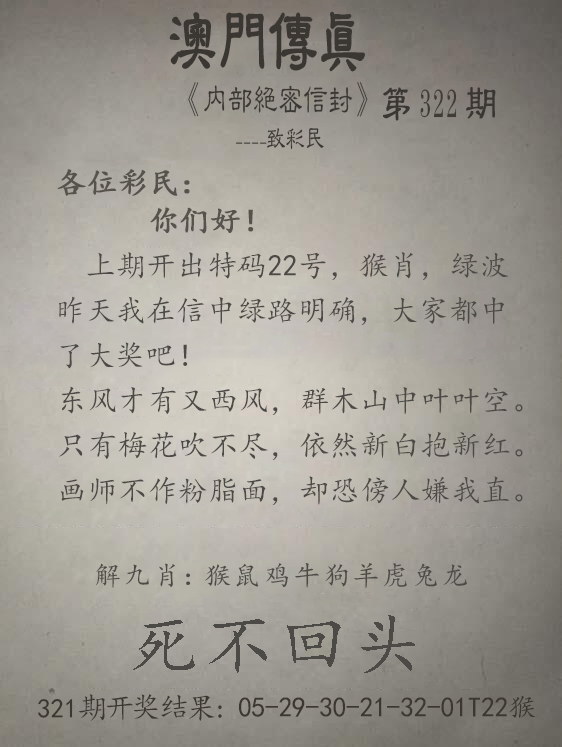 澳門傳真
《内部絕密信封》第322期
----致彩民
各位彩民：
你们好！
上期开出特码22号，猴肖，绿波
昨天我在信中绿路明确，大家都中
了大奖吧！
东风才有又西风，群木山中叶叶空。
只有梅花吹不尽，依然新白抱新红。
画师不作粉脂面，却恐傍人嫌我直。
解九肖：猴鼠鸡牛狗羊虎兔龙
死不回头
321期开奖结果：05-29-30-21-32-01T22猴